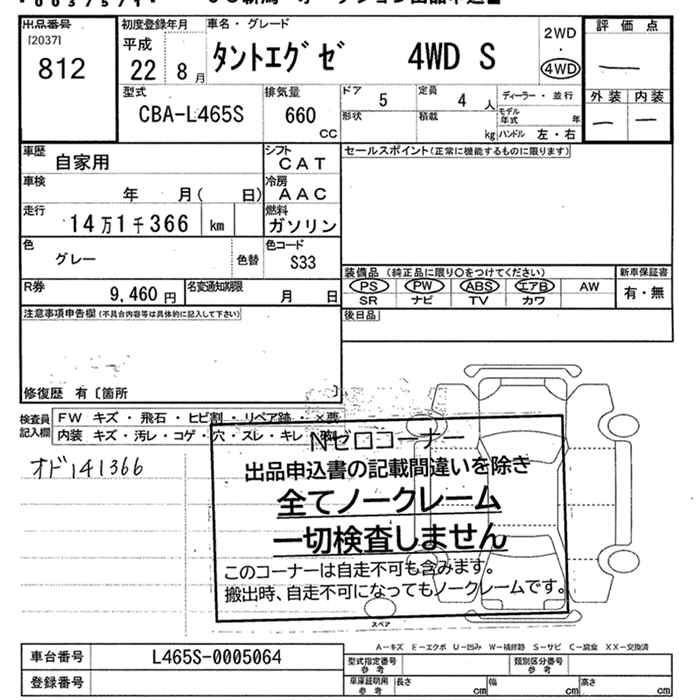 出品番号
[2037]
812
初度登録年月
平成
22年 8月
車名・グレード
タントエグゼ 4WD S
2WD
・
4WD
評価点
—
外装 内装
— —
型式
CBA-L465S
排気量
660
CC
ドア
5
定員
4 人
ディーラー・並行
モデル年式 年
形状
積載
kg
ハンドル 左・右
車歴
自家用
シフト
CAT
車検
年 月( 日)
冷房
AAC
走行
14万1千366 km
燃料
ガソリン
色
グレー
色替
色コード
S33
R券
9,460 円
名変通知期限
月 日
注意事項申告欄(不具合内容等は具体的に記入して下さい)
修復歴 有〔箇所
セールスポイント(正常に機能するものに限ります)
装備品(純正品に限り○をつけてください)
PS PW ABS エアB AW
SR ナビ TV カワ
新車保証書
有・無
後日品
検査員記入欄
FW キズ・飛石・ヒビ割・リペア跡・×要
内装 キズ・汚レ・コゲ・穴・スレ・キレ
オド141366
Nゼロコーナー
出品申込書の記載間違いを除き
全てノークレーム
一切検査しません
このコーナーは自走不可も含みます。
搬出時、自走不可になってもノークレームです。
スペア
A-キズ E-エクボ U-凹み W-補修跡 S-サビ C-腐食 XX-交換済
車台番号
L465S-0005064
登録番号
型式指定番号
参考
類別区分番号
参考
車庫証明用
参考
長さ cm
幅 cm
高さ cm